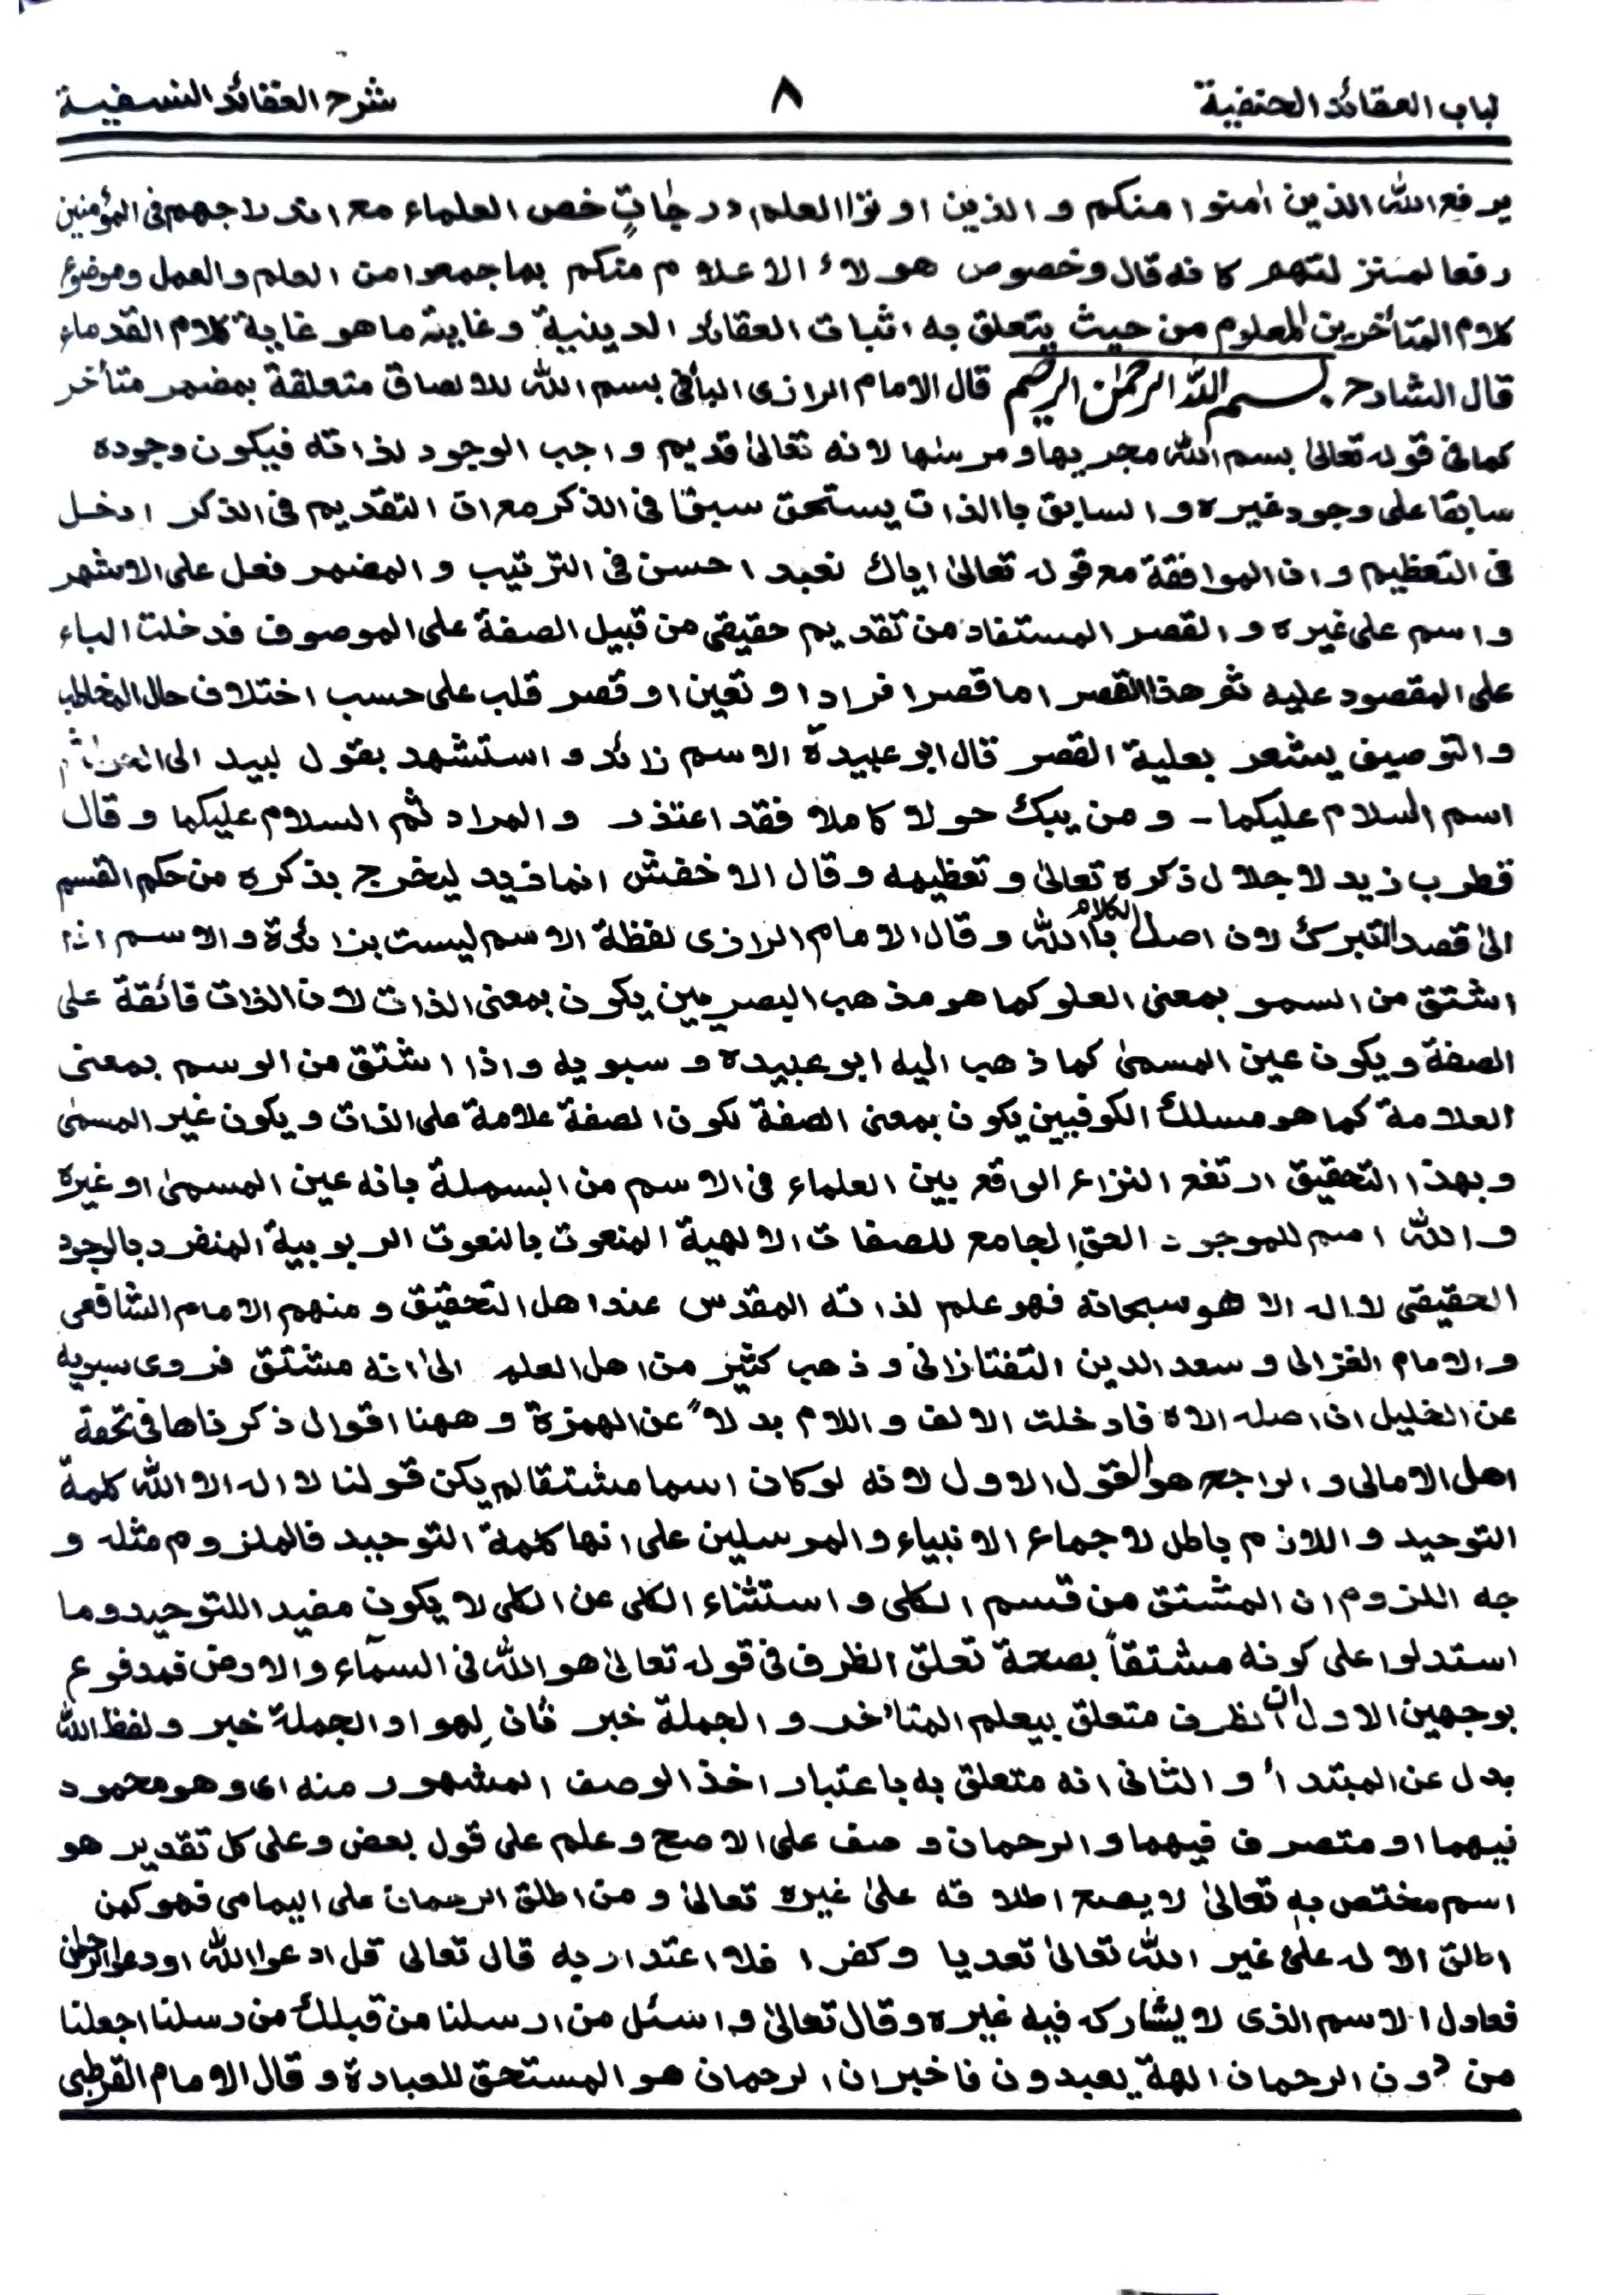 لباب العقائد الحنفية ٨ شرح العقائد النسفية
يرفع الله الذين اٰمنوا منكم و الذين اوتوا العلم درجاتٍ خص العلماء مع اندلاجهم فى المؤمنين
رفعا لمنزلتهم كانه قال وخصوص هولاء الاعلام منكم بما جمعوا من العلم والعمل وموضوع
كلام المتأخرين المعلوم من حيث يتعلق به اثبات العقائد الدينية وغايته ما هو غاية كلام القدماء
قال الشارح بسم الله الرحمٰن الرحيم قال الامام الرازى البأفى بسم الله للالصاق متعلقة بمضمر متأخر
كما فى قوله تعالىٰ بسم الله مجريها ومرسٰها لانه تعالىٰ قديم واجب الوجود لذاته فيكون وجوده
سابقا على وجود غيره والسابق باالذات يستحق سبقا فى الذكر مع ان التقديم فى الذكر ادخل
فى التعظيم وان الموافقة مع قوله تعالىٰ اياك نعبد احسن فى الترتيب والمضمر فعل على الاشهر
واسم على غيره والقصر المستفاد من تقديم حقيقى من قبيل الصفة على الموصوف فدخلت الباء
على المقصود عليه ثم هذا القصر اما قصر افراد او تعين او قصر قلب على حسب اختلاف حال المخاطب
والتوصيف يشعر بعلية القصر قال ابو عبيدة الاسم زائد واستشهد بقول لبيد الى الحول ثم
اسم السلام عليكما - ومن يبك حولا كاملا فقد اعتذر والمراد ثم السلام عليكما وقال
قطرب زيد لاجلال ذكره تعالىٰ وتعظيمه وقال الاخفش انما زيد ليخرج بذكره من حكم القسم
الىٰ قصد التبرك لان اصل الكلام باالله وقال الامام الرازى لفظة الاسم ليست بزائدة والاسم اذا
اشتق من السمو بمعنى العلو كما هو مذهب البصريين يكون بمعنى الذات لان الذات فائقة على
الصفة ويكون عين المسمىٰ كما ذهب اليه ابو عبيده و سبويه واذا اشتق من الوسم بمعنى
العلامة كما هو مسلك الكوفيين يكون بمعنى الصفة لكون الصفة علامة على الذات ويكون غير المسمىٰ
وبهذا التحقيق ارتفع النزاع الواقع بين العلماء فى الاسم من البسملة بانه عين المسمىٰ او غيره
والله اسم للموجود الحق الجامع للصفات الالهية المنعوت بالنعوت الربوبية المنفرد بالوجود
الحقيقى لا اله الا هو سبحانه فهو علم لذاته المقدس عند اهل التحقيق ومنهم الامام الشافعى
والامام الغزالى وسعد الدين التفتازانى وذهب كثير من اهل العلم الىٰ انه مشتق فروى سبويه
عن الخليل ان اصله الاه فادخلت الالف واللام بدلاً عن الهمزة وههنا اقوال ذكرناها فى تحفة
اهل الامالى والراجح هو القول الاول لانه لو كان اسما مشتقا لم يكن قولنا لا اله الا الله كلمة
التوحيد واللازم باطل لاجماع الانبياء والمرسلين على انها كلمة التوحيد فالملزوم مثله و
جه اللزوم ان المشتق من قسم الكلى واستثناء الكلى عن الكلى لا يكون مفيد اللتوحيد وما
استدلوا على كونه مشتقاً بصحة تعلق الظرف فى قوله تعالىٰ هو الله فى السمآء والارض فمدفوع
بوجهين الاول ان الظرف متعلق بيعلم المتأخر والجملة خبر ثان لهو او الجملة خبر ولفظ الله
بدل عن المبتدأ والثانى انه متعلق به باعتبار اخذ الوصف المشهور منه اى وهو محمود
فيهما او متصرف فيهما والرحمان وصف على الاصح وعلم على قول بعض وعلى كل تقدير هو
اسم مختص به تعالىٰ لا يصح اطلاقه علىٰ غيره تعالىٰ ومن اطلق الرحمان على اليمامى فهو كمن
اطلق الاله علىٰ غير الله تعالىٰ تعديا وكفرا فلا اعتدار به قال تعالى قل ادعوا الله او دعوا الرحمٰن
فعادل الاسم الذى لا يشاركه فيه غيره وقال تعالىٰ واسئل من ارسلنا من قبلك من رسلنا اجعلنا
من دون الرحمان الهة يعبدون فاخبر ان الرحمان هو المستحق للعبادة وقال الامام القرطبى